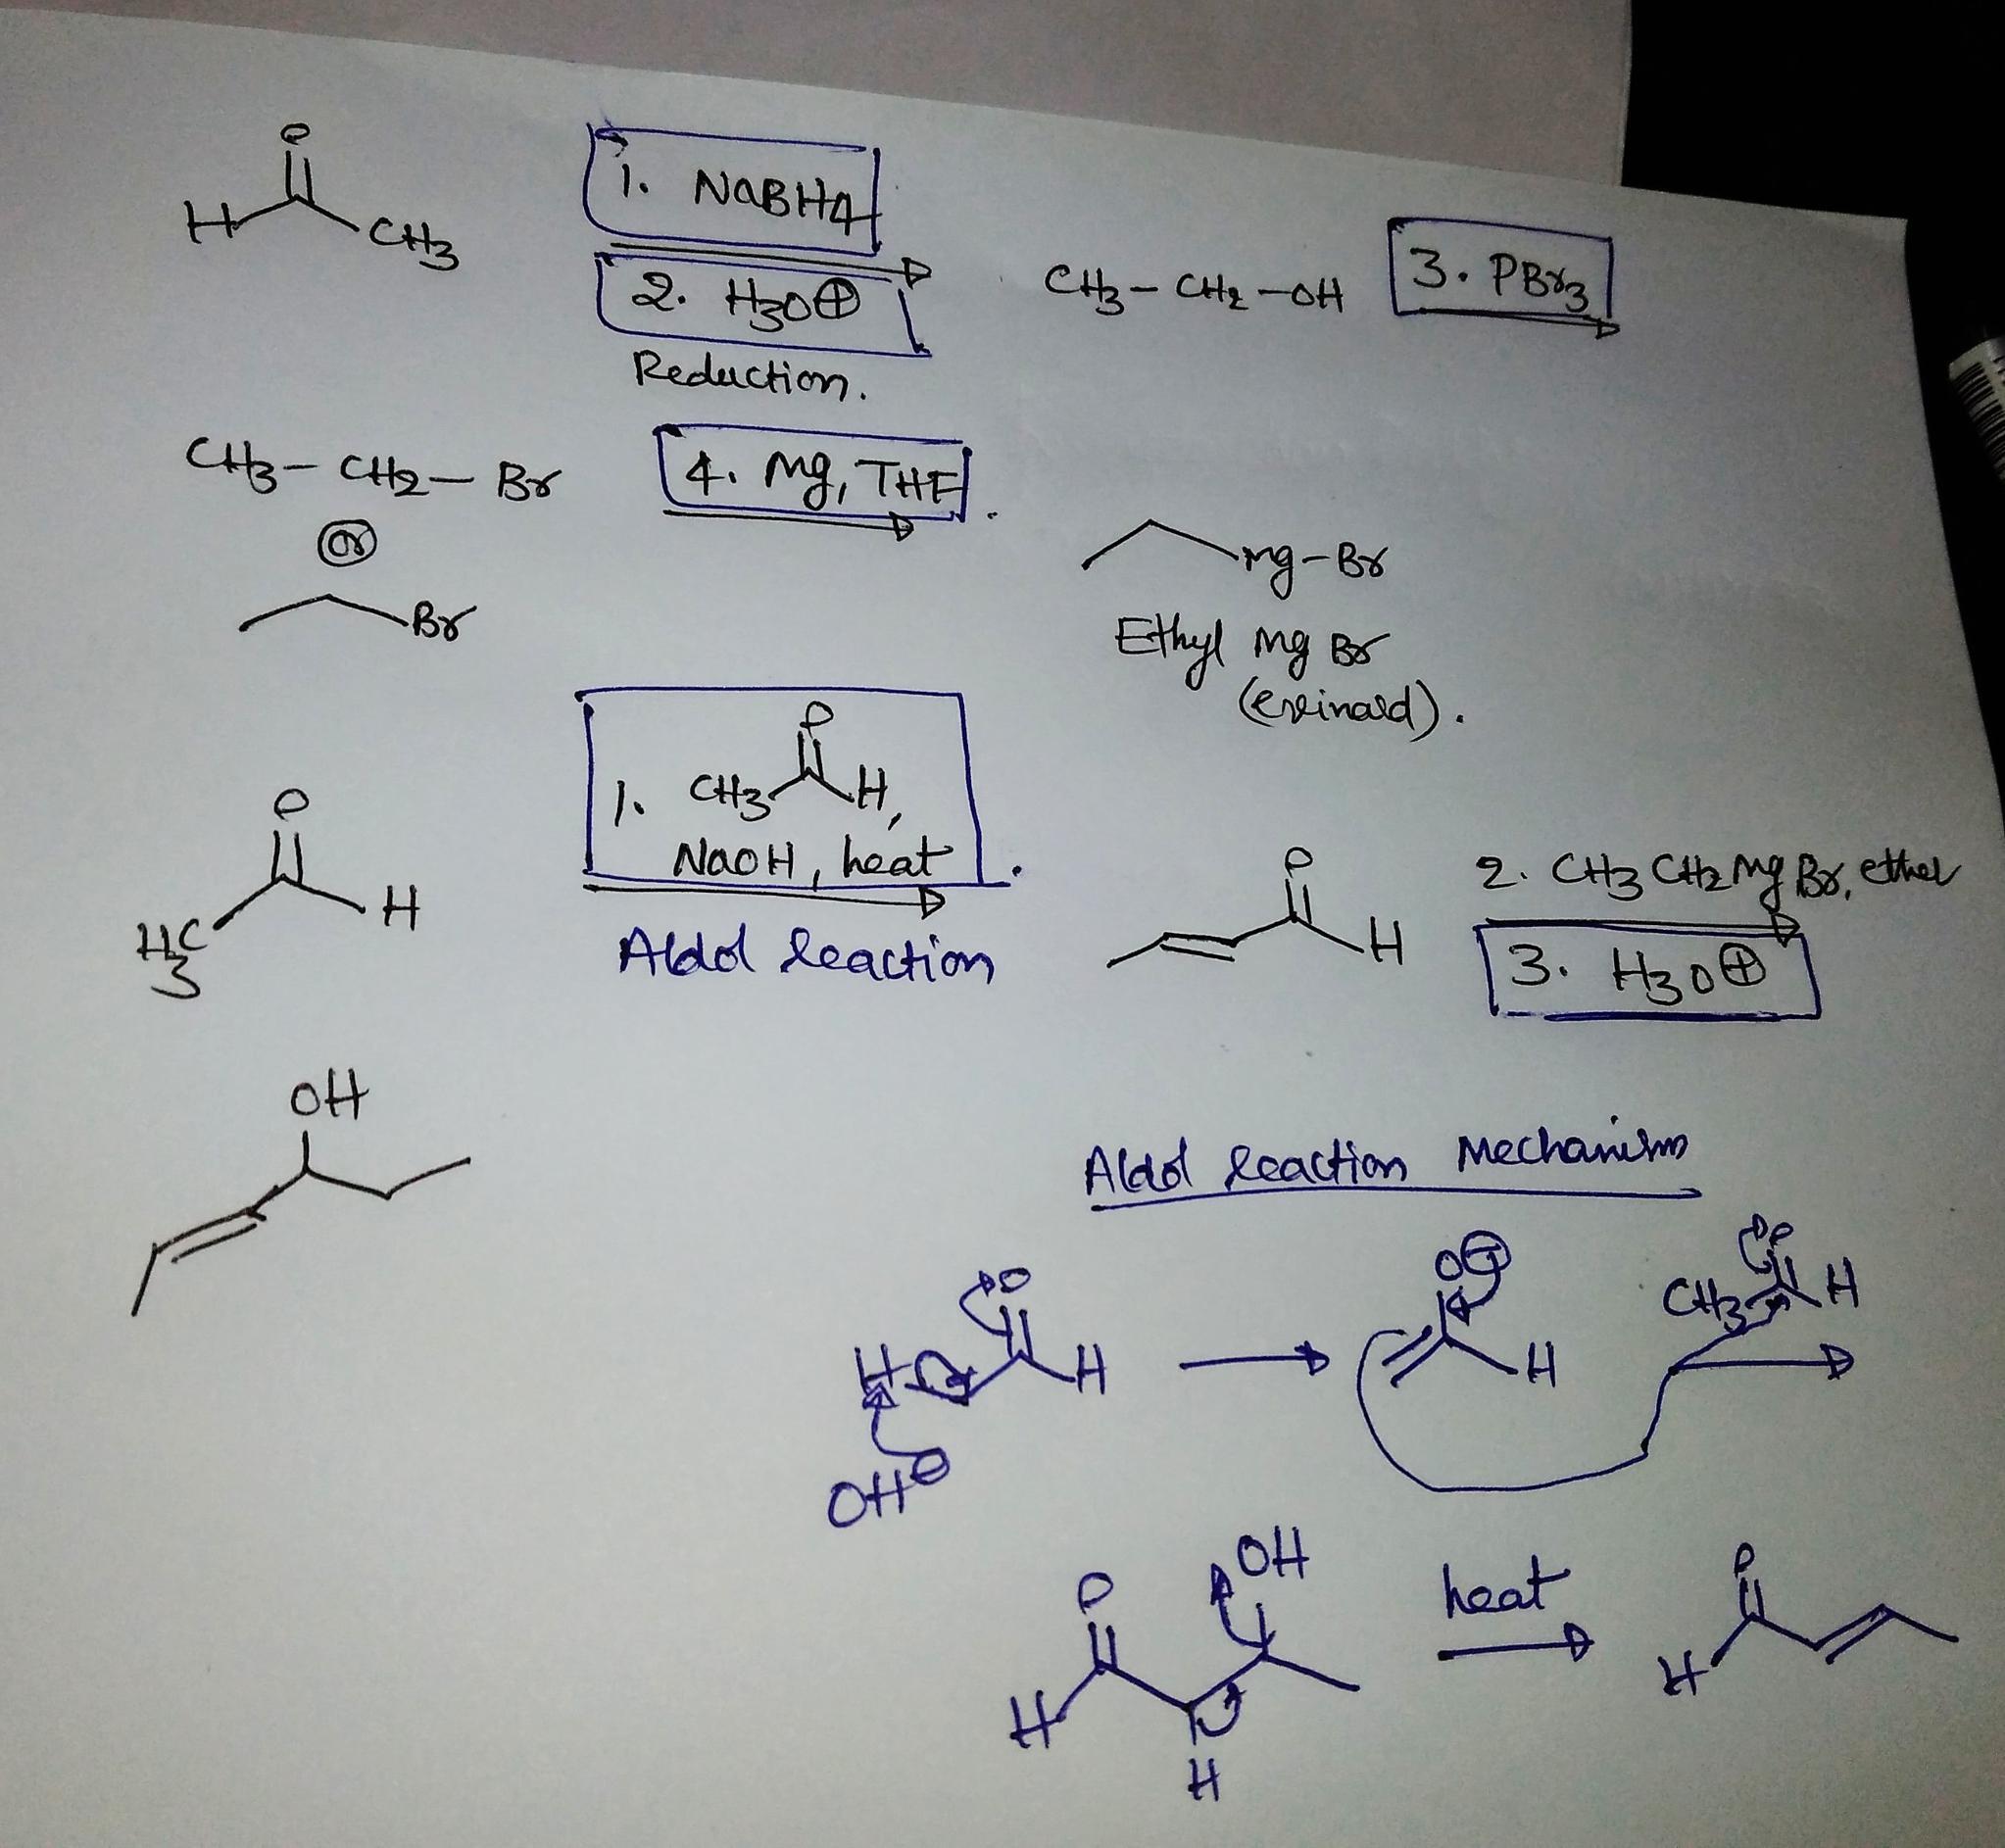 O
H CH3
1. NaBH4
2. H3O⊕
Reduction.
CH3 - CH2 - OH
3. PBr3
CH3 - CH2 - Br
4. Mg, THF.
or
Br
Mg - Br
Ethyl Mg Br
O
H3C H
1. CH3 O H,
NaOH, heat
Aldol Reaction
O
H
2. CH3CH2MgBr, ether
3. H3O⊕
OH
Aldol Reaction Mechanism
O
H H
OH⊖
O⊖
H
O
CH3 H
O OH
H
H
heat
O
H